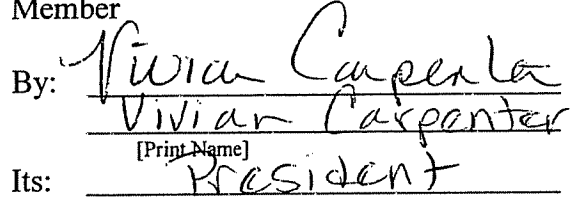 Member
By: Vivian Carpenter
Vivian Carpenter
[Print Name]
Its: President